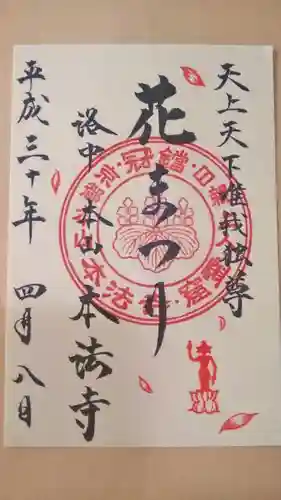 天上天下唯我独尊
花まつり
洛中 本山 本法寺
平成三十年 四月八日